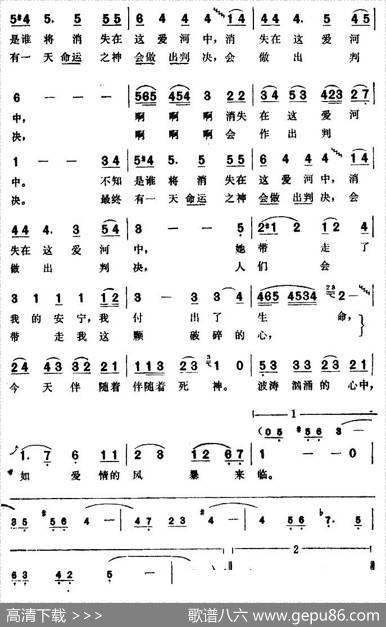 5 #4 5. 5 5 5 | 6 4 4 4 1 4 | #4 5. 5 5 5 | 4 4 4. 3 4 5
是谁将消失在这爱河中,消失在这爱河
有一天命运之神会做出判决,会做出判
6 — — | 565 454 3 2 2 | 3 4 5 3 423 2 7
中, 啊啊啊消失在这爱河
决, 啊啊啊会作出判
1 — — 3 4 | 5 #4 5. 5 5 5 | 6 4 4 4 1 4
中。 不知是谁将消失在这爱河中,消
决。 最终有一天命运之神会做出判决,会
4 4 4. 3 5 4 | 3 — — 5 | 2 #1 2 1 2 4
失在这爱河中, 她带走了
做出判决, 人们会
3 1 1 1 1 2 | 3 — 3 3 4 | 465 4534 | 2 —
我的安宁,我付出了生命,
带走我这颗破碎的心,
2 4 4 3 3 2 2 1 | 1 1 3 2 3 1 0 | 5 3 3 3 2 3 2 1
今天伴随着伴随着死神。波涛汹涌的心中,
1
(0 5 #5 6 3 —
1. 7 6 1 1 | 2 3 1 2 6 7 | 1 — —
如爱情的风暴来临。
3 5 #5 6 4 — | 4 7 2 3 #4 — | 4 5 6 b7. 5
2
6 3 4 2 5
高清下载 >>> 歌谱八六 www.gepu86.com